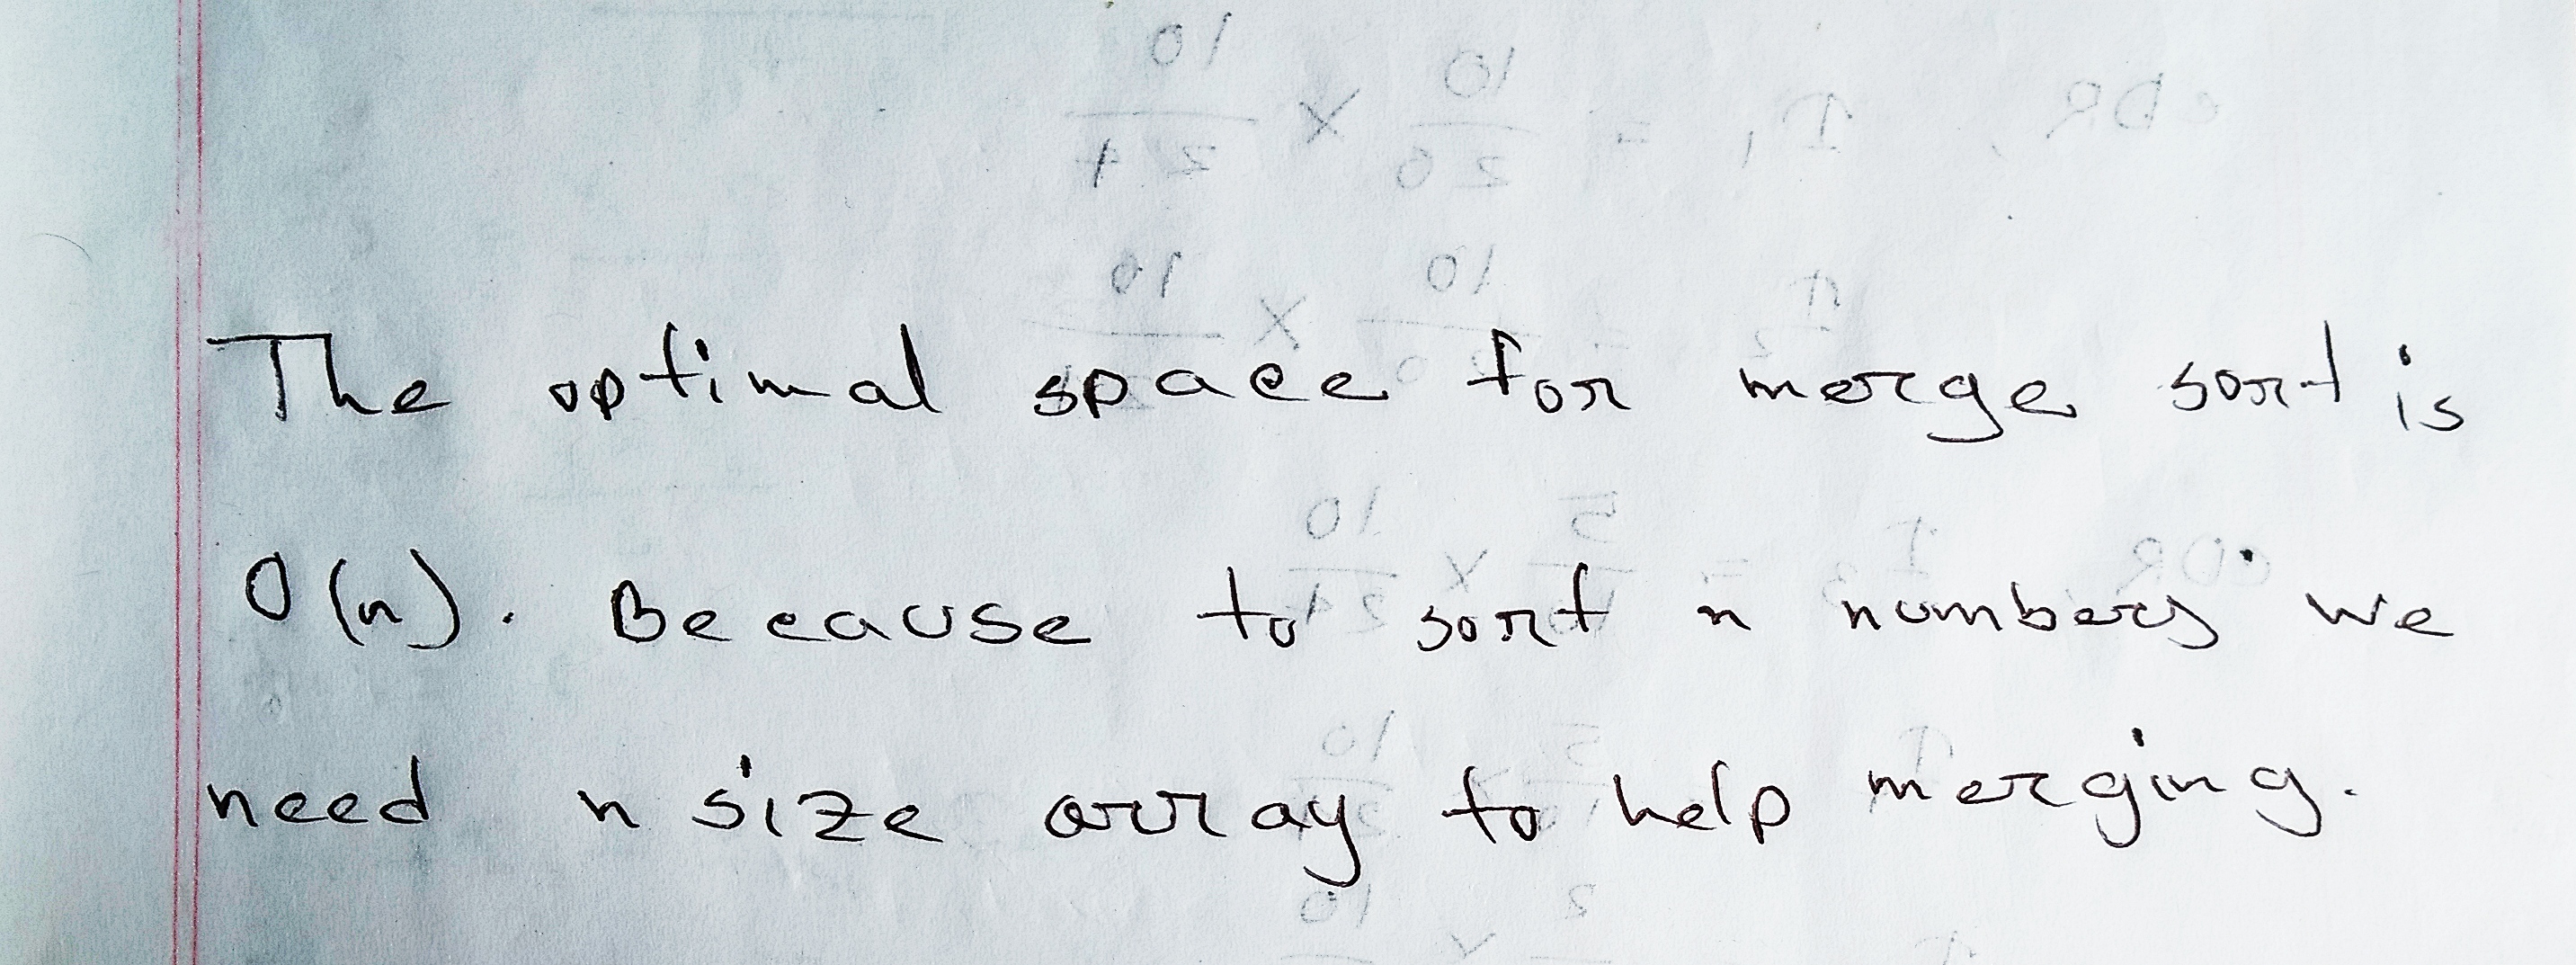 The optimal space for merge sort is
O(n). Because to sort n numbers we
need n size array to help merging.